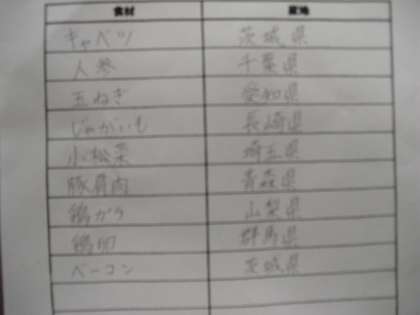 食材 産地
キャベツ 茨城県
人参 千葉県
玉ねぎ 愛知県
じゃがいも 長崎県
小松菜 埼玉県
豚肩肉 青森県
鶏ガラ 山梨県
鶏卵 群馬県
ベーコン 茨城県